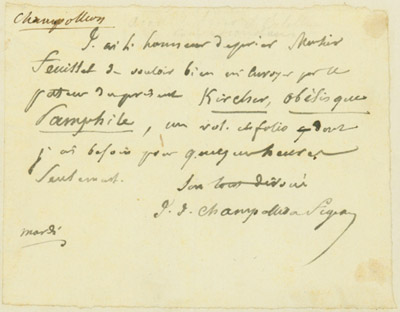 Champollion
J'ai l'honneur de prier Monsieur
Feuillet de vouloir bien m'envoyer par le
porteur du présent Kircher, Obélisque
Pamphile, un vol. in folio dont
j'ai besoin pour quelques heures
seulement.
Son tout dévoué
J. J. Champollion Figeac
mardi